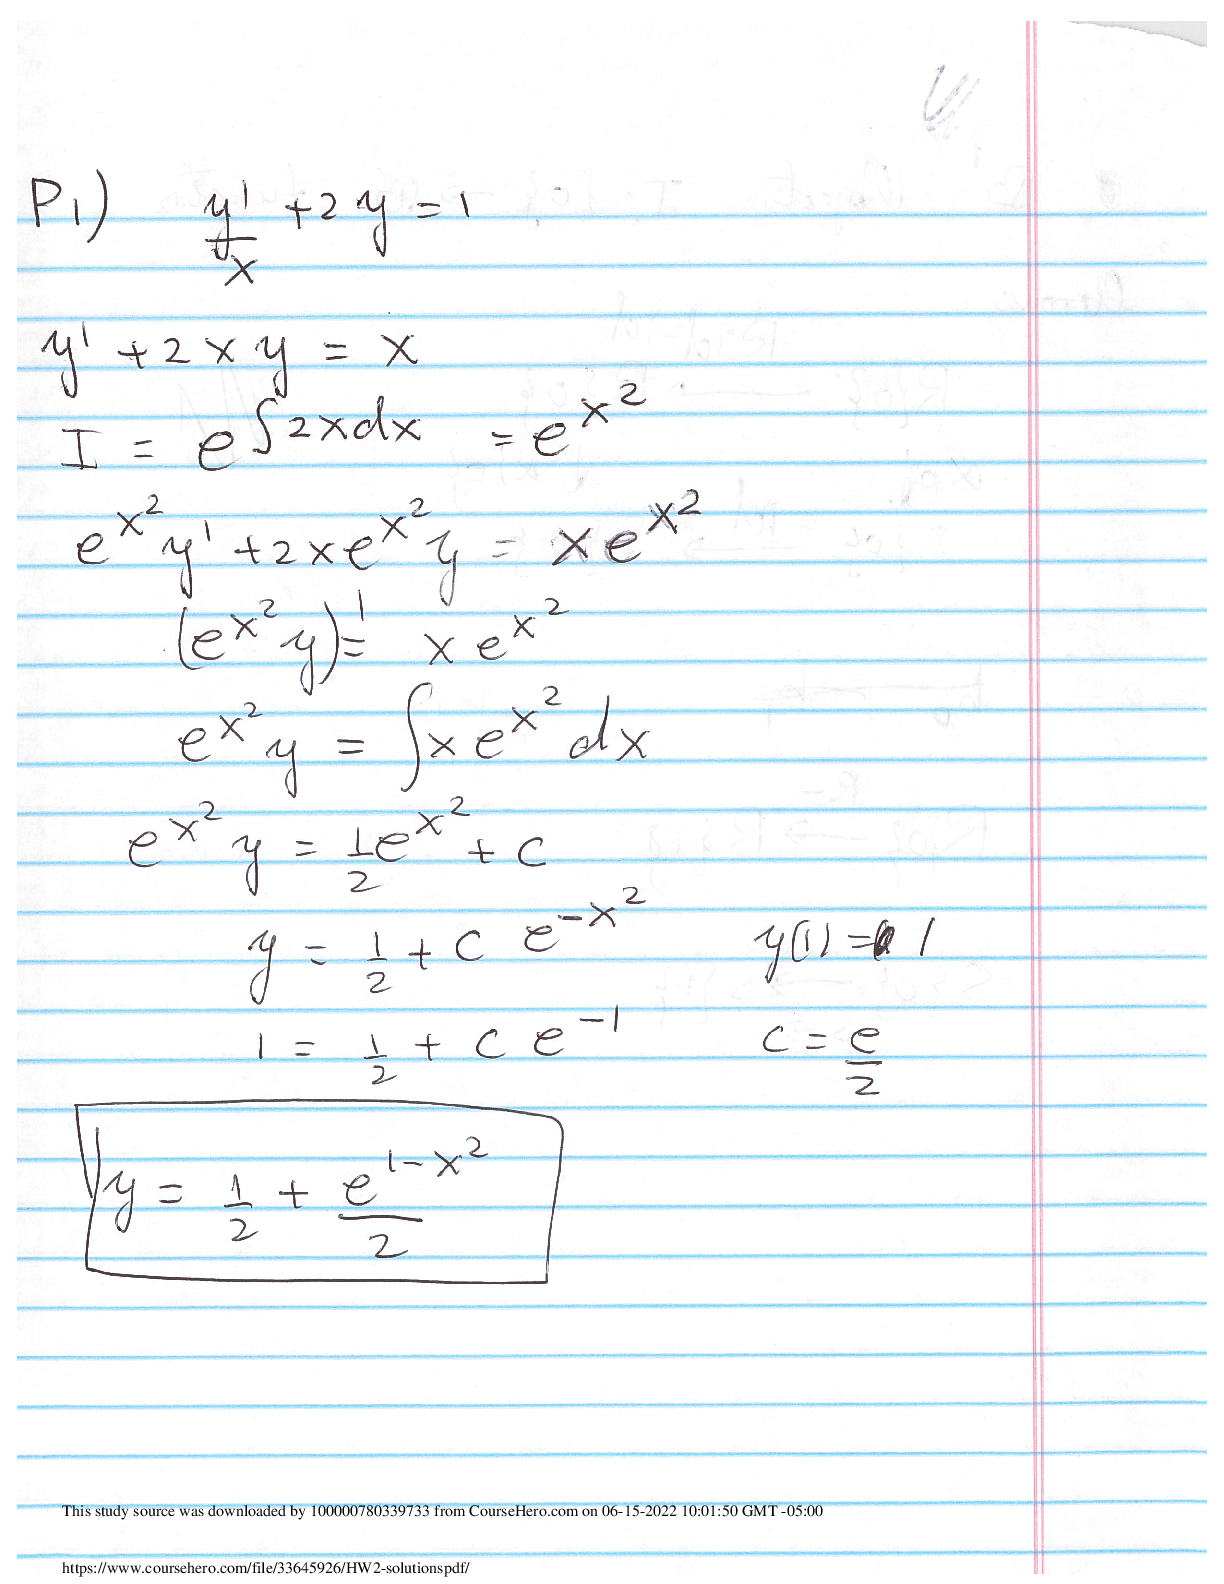 P1) y'/x + 2y = 1
y' + 2xy = x
I = e^∫2xdx = e^x^2
e^x^2 y' + 2xe^x^2 y = xe^x^2
(e^x^2 y)' = x e^x^2
e^x^2 y = ∫x e^x^2 dx
e^x^2 y = 1/2 e^x^2 + C
y = 1/2 + C e^-x^2 y(1) = 1
1 = 1/2 + C e^-1 C = e/2
y = 1/2 + e^1-x^2/2
This study source was downloaded by 100000780339733 from CourseHero.com on 06-15-2022 10:01:50 GMT -05:00
https://www.coursehero.com/file/33645926/HW2-solutionspdf/